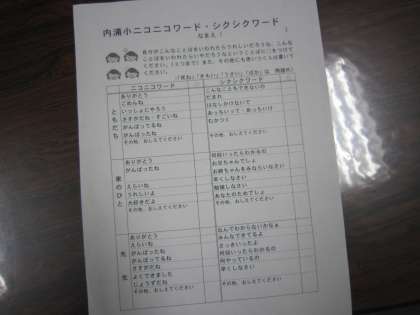 内浦小ニコニコワード・シクシクワード
なまえ(　　　)
自分がこんなことばをいわれたらうれしいだろうな、こんな
ことばをいわれたらいやだろうなということばに○をつけて
ください。
ニコニコワード
シクシクワード
ともだち
ありがとう
ごめんね
いっしょにやろう
さすがだね・すごいね
がんばってるね
がんばったね
その他、おしえてください
こんなこともできないの
だまれ
はなしかけないで
あっちいって・あっちいけ
むかつく
その他、おしえてください
家のひと
ありがとう
がんばったね
えらいね
うれしいよ
大好きだよ
その他、おしえてください
何回いったらわかるの
お兄ちゃんでしょ
お姉ちゃんをみならいなさい
早くしなさい
勉強しなさい
あなたのためでしょ
その他、おしえてください
先生
ありがとう
えらいね
がんばったね
がんばってるね
さすがだね
よくできました
じょうずだね
その他、おしえてください
なんでわからないかなぁ
みんなできてるよ
さっきいったよ
何回いったらわかるの
何やっているの
早くしなさい
その他、おしえてください